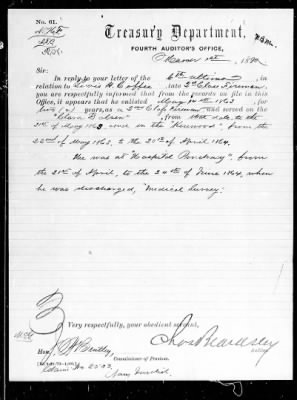 No. 61.
Treasury Department,
FOURTH AUDITOR'S OFFICE,
March 1st, 1880
Sir:
In reply to your letter of the 6th ultimo, in
relation to Lewis H. late 2d Class Fireman
you are respectfully informed that from the records on file in this
Office, it appears that he enlisted May 14th 1863, for
years, as a 2nd Class Fireman and served on the
"Clara Dolsen", from that date, to the
21st of May 1863 was on the "Kenwood", from the
22nd of May 1863, to the 20th of April 1864.
He was at "Hospital Pinkney", from
the 21st of April, to the 24th of June 1864, when
he was discharged, "Medical Survey."
Very respectfully, your obedient servant,
Hon. Bentley,
Commissioner of Pensions.
Claim No. 2503,
Navy Invalid.
Beardsley